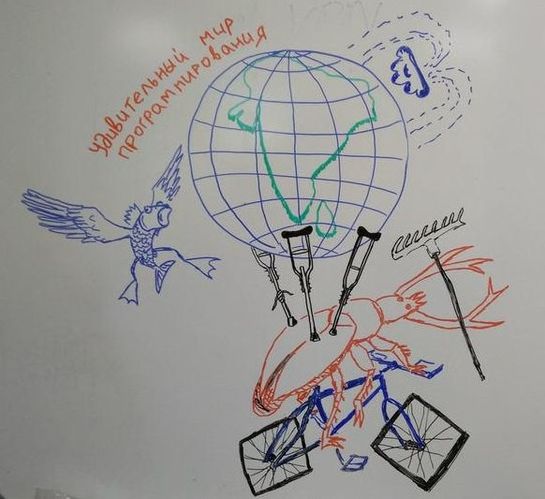 удивительный мир
программирования